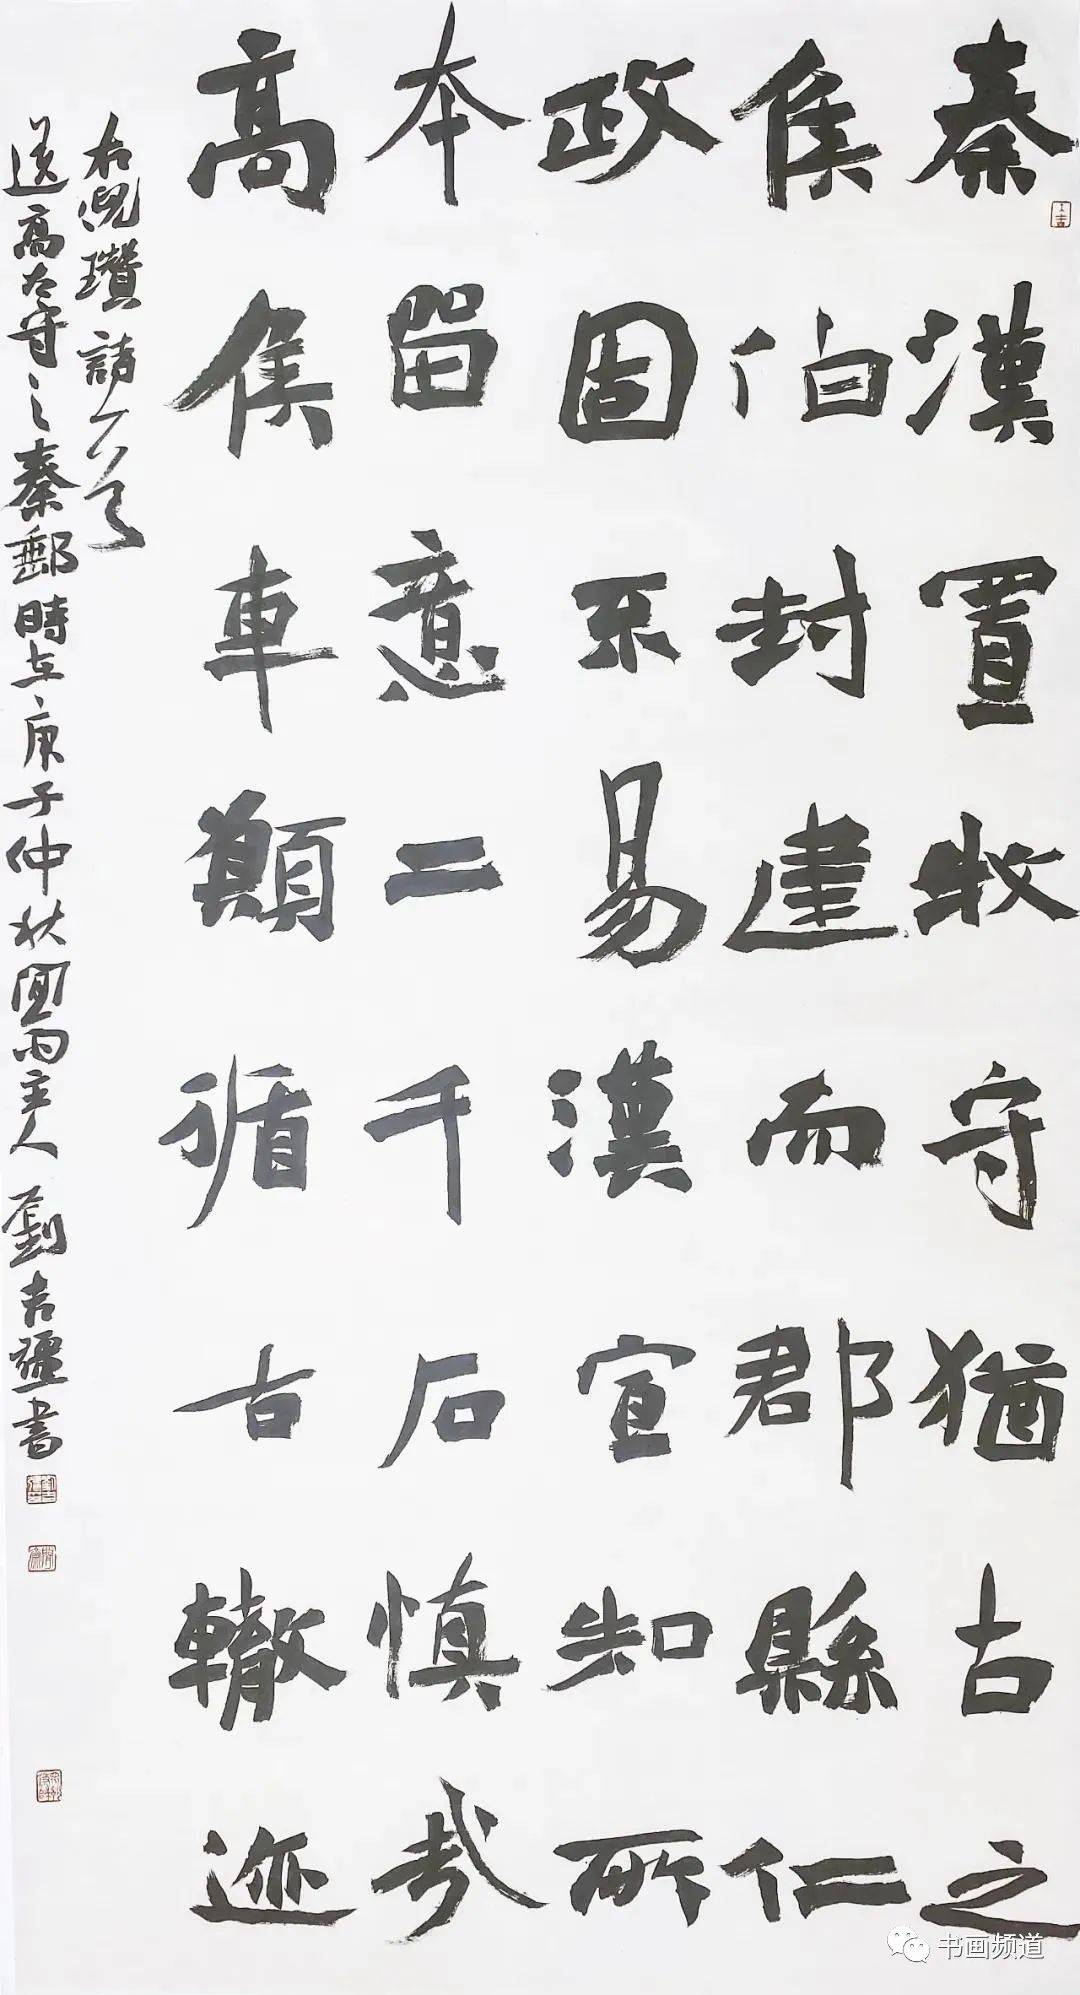 秦漢置牧守猶古之
侯伯封建而郡縣仁
政固不易漢宣知所
本留意二千石慎哉
高侯車顛循古轍迹
右倪瓚詩
送高太守之秦郵時在庚子仲秋 主人劉吉疆書
书画频道